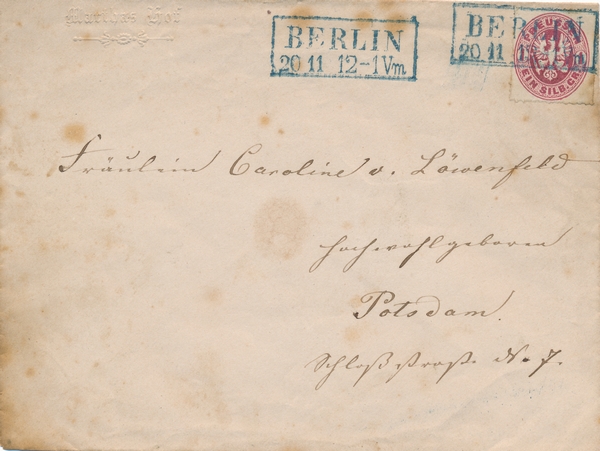 Marthas Hof
BERLIN
20 11 12-1 Vm
BERLIN
20 11
PREUSSEN
EIN SILB. GR.
Fräulein Caroline v. Löwenfeld
hochwohlgeboren
Potsdam.
Schloßstraße N. 7.